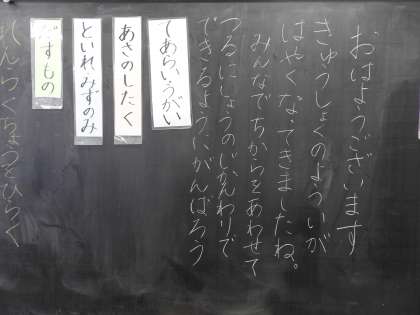 おはようございます
きゅうしょくのよういが
はやくなってきましたね。
みんなでちからをあわせて
できるようにがんばろう
てあらいうがい
あさのしたく
といれ、みずのみ
だすもの
れんらくちょうをひらく